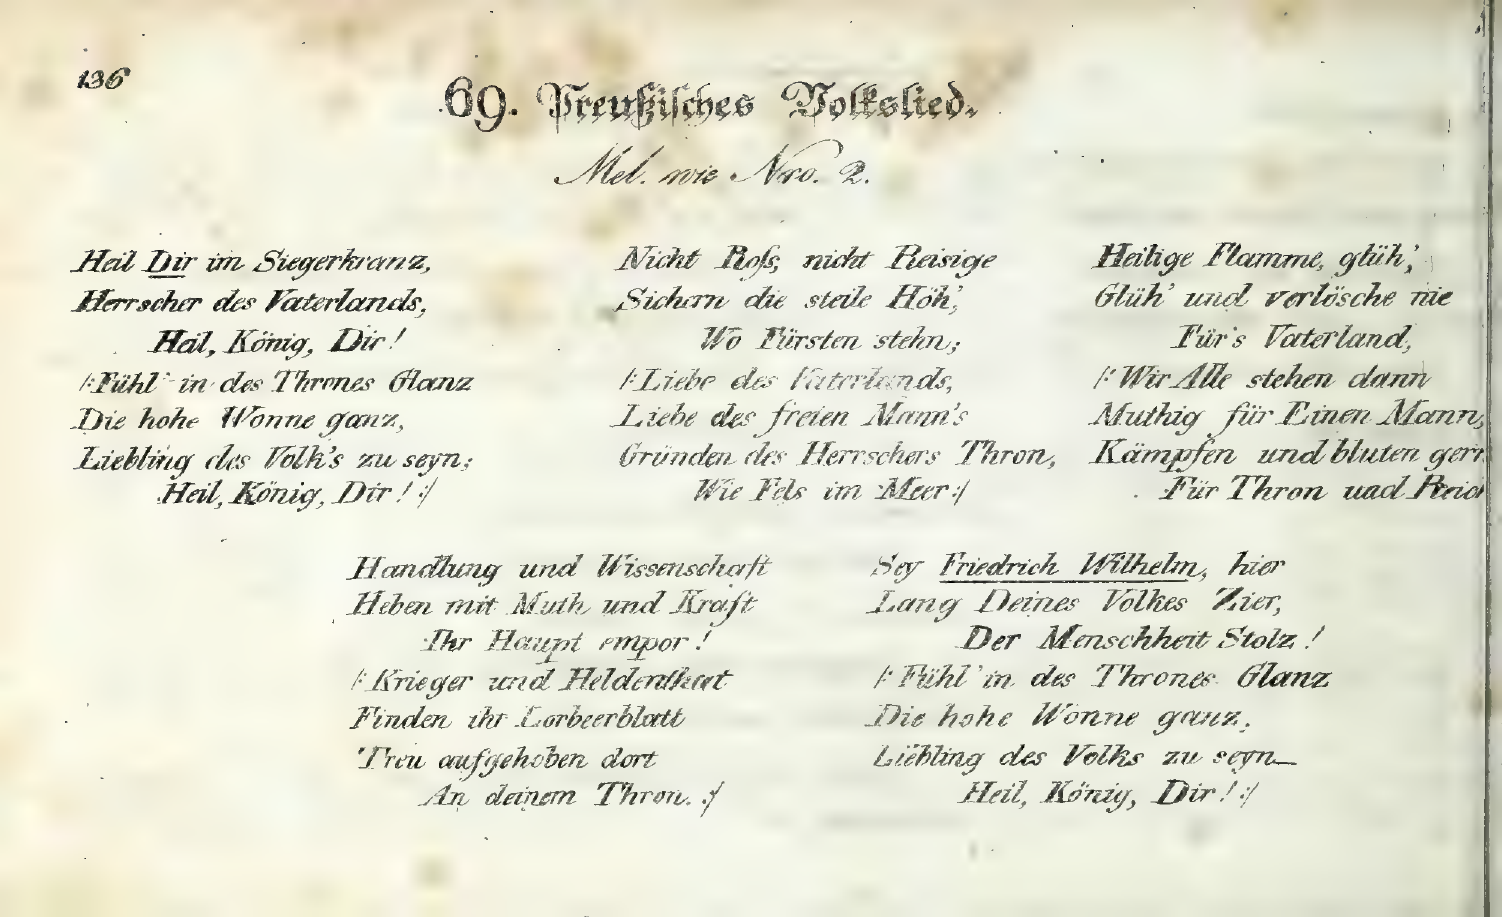 136
69. Preußisches Volkslied.
Mel. wie Nro. 2.
Heil Dir im Siegerkranz,
Herrscher des Vaterlands,
Heil, König, Dir!
/:Fühl' in des Thrones Glanz
Die hohe Wonne ganz,
Liebling des Volk's zu seyn;
Heil, König, Dir! :/
Nicht Roß, nicht Reisige
Sichern die steile Höh',
Wo Fürsten stehn;
/:Liebe des Vaterlands,
Liebe des freien Mann's
Gründen des Herrschers Thron,
Wie Fels im Meer:/
Heilige Flamme, glüh',
Glüh' und verlösche nie
Für's Vaterland,
/:Wir Alle stehen dann
Muthig für Einen Mann,
Kämpfen und bluten
Für Thron uad
Handlung und Wissenschaft
Heben mit Muth und Kraft
Ihr Haupt empor!
/:Krieger und Heldenthat
Finden ihr Lorbeerblatt
Treu aufgehoben dort
An deinem Thron. :/
Sey Friedrich Wilhelm, hier
Lang Deines Volkes Zier,
Der Menschheit Stolz!
/:Fühl' in des Thrones Glanz
Die hohe Wonne ganz,
Liebling des Volks zu seyn—
Heil, König, Dir! :/